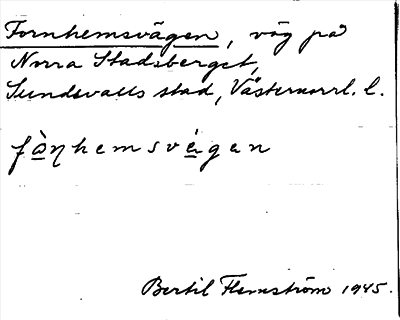 Fornhemsvägen, väg på
Norra Stadsberget,
Sundsvalls stad, Västernorrl. l.
fὰηhemsvέgen
Bertil Flemström 1945.